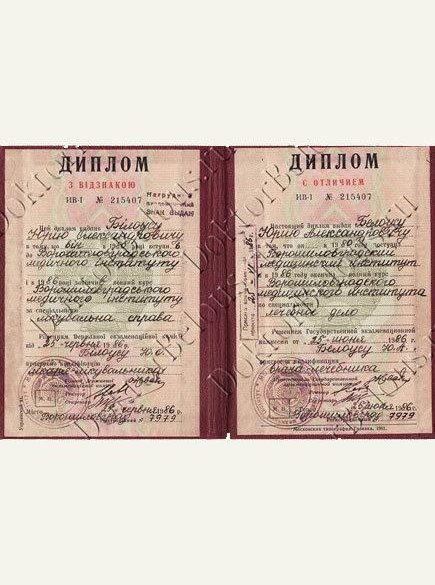 ДИПЛОМ
З ВІДЗНАКОЮ
ИВ-І № 215407
Нагрудний
ЗНАК ВЫДАН
Цей диплом видано Білоусу
Юрію Олександровичу
в тому, що він в 1980 році вступив до
Ворошиловградського
медичного інституту
і в 1986 році закінчив повний курс
Ворошиловградського
медичного інституту
за спеціальністю
лікувальна справа
Рішенням Державної екзаменаційної комісії
від 25 червня 1986 р.
Білоусу Ю.О.
присвоєно кваліфікацію
лікаря-лікувальника
Ректор
Секретар
М. П.
червня 1986 р.
Ворошиловград
7979
ДИПЛОМ
С ОТЛИЧИЕМ
ИВ-І № 215407
Настоящий диплом выдан Белоусу
Юрию Александровичу
в том, что он в 1980 году поступил
в Ворошиловградский
медицинский институт
и в 1986 году окончил полный курс
Ворошиловградского
медицинского института
по специальности
лечебное дело
Решением Государственной экзаменационной
комиссии от 25 июня 1986 г.
Белоусу Ю.А.
присвоена квалификация
врача-лечебника
Председатель Государственной
экзаменационной комиссии
Ректор
Секретарь
М. П.
26 июня 1986 г.
Ворошиловград
7979
Московская типография Гознака. 1981.
DoktorBelous.ru